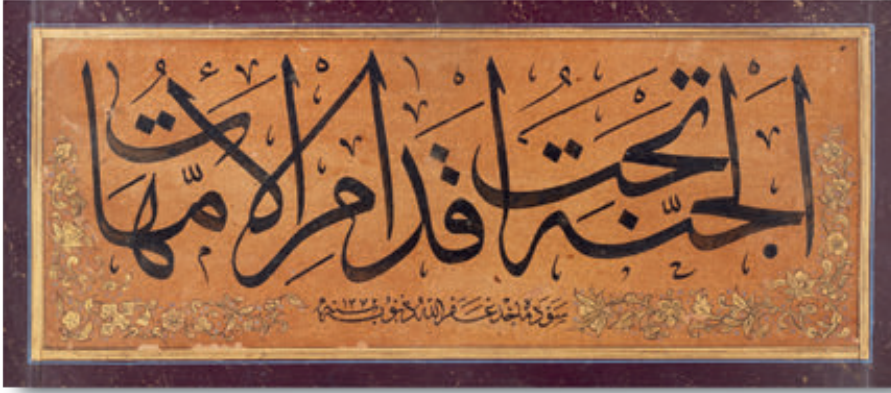 الجنّة تحت اقدام الامّهات
سوده غفر الله ذنوبه